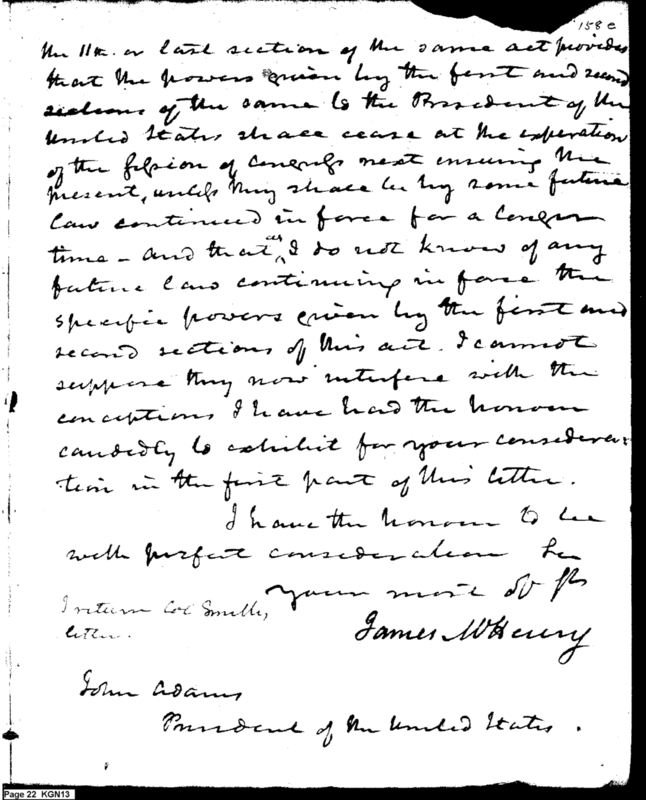 158 e
the 11th. or last section of the same act provides
that the powers given by the first and second
sections of the same to the President of the
United States shall cease at the experation
of the session of Congress next ensuing the
present, unless they shall be by some future
law continued in force for a longer
time - and that as I do not know of any
future law continuing in force the
specific powers given by the first and
second sections of this act. I cannot
suppose they now interfere with the
conceptions I have had the honour
candedly to exhibit for your considera-
tion in the first part of this letter.
I have the honour to be
with perfect consideration Sir
your most ob
I return Col Smith,
letter.
James McHenry
John Adams
President of the United States.
Page 22 KGN13